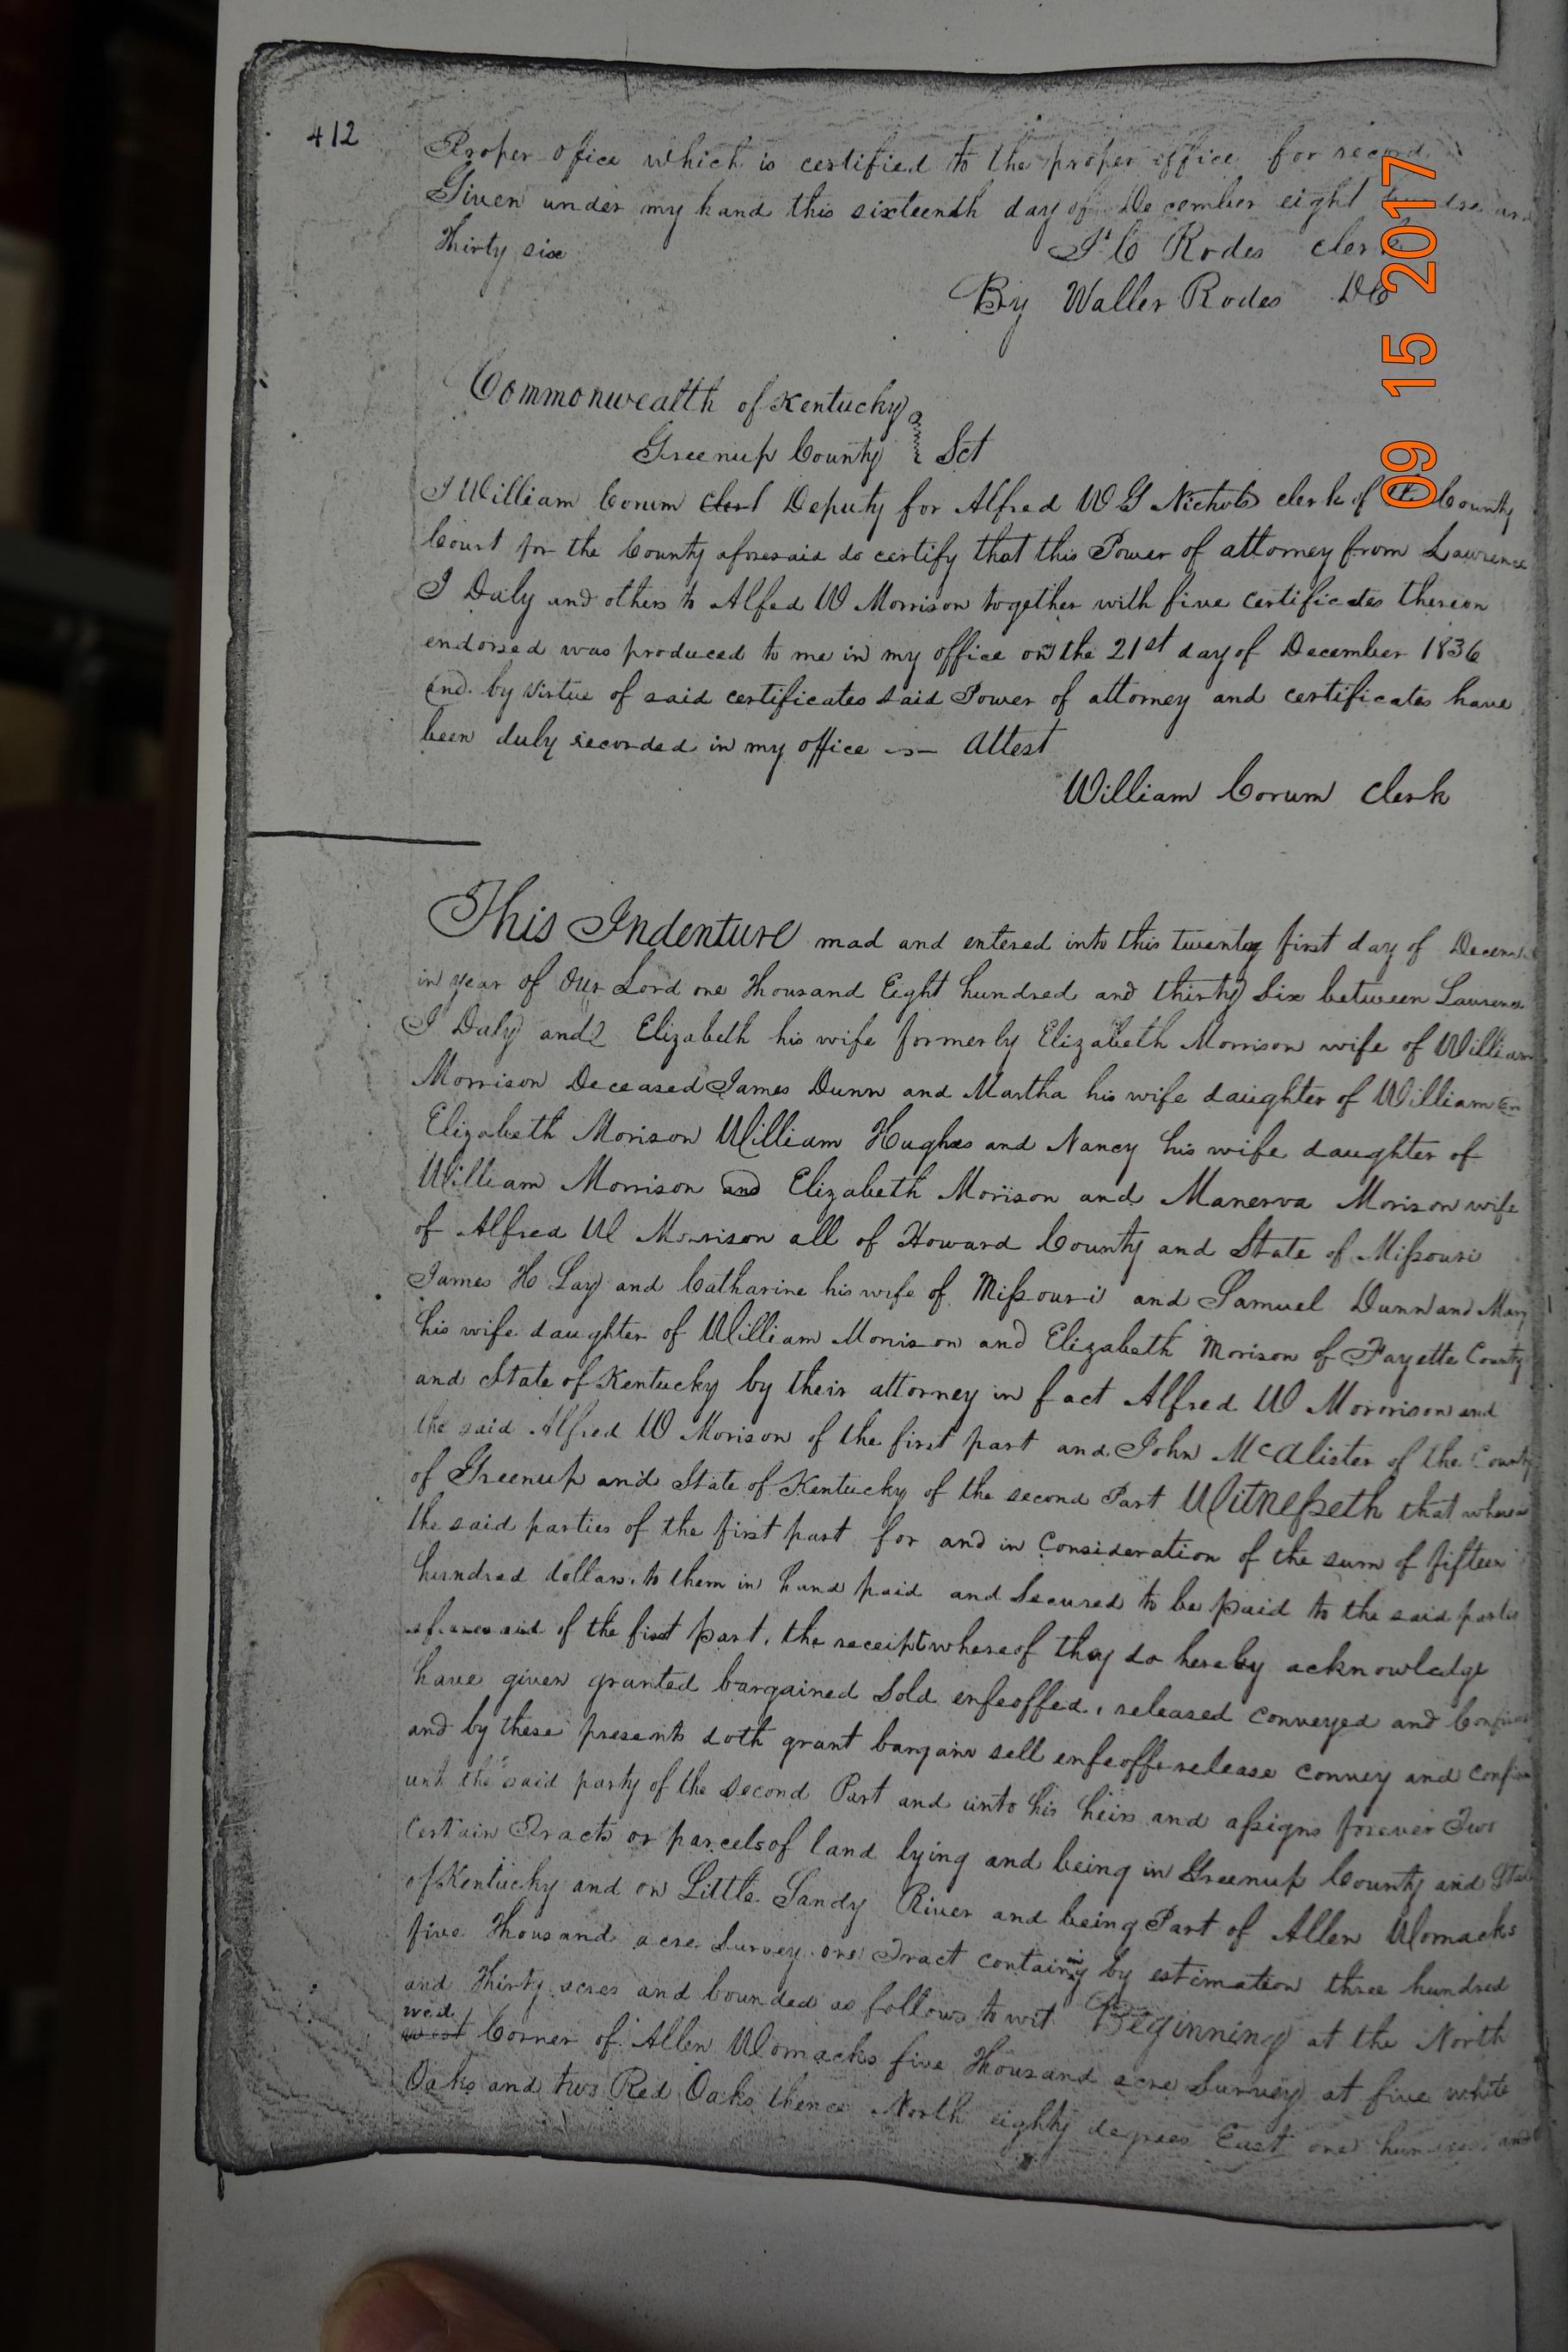 412
Proper office which is certified to the proper office for record
Given under my hand this sixteenth day of December eight hundred and
Thirty six
J C Rodes clerk
By Waller Rodes DC
Commonwealth of Kentucky
Greenup County } Sct
I William Corum Clerk Deputy for Alfred W G Nichols clerk of the County
Court for the County aforesaid do certify that this Power of attorney from Lawrence
J Daly and others to Alfed W Morrison together with five certificates thereon
endorsed was produced to me in my office on the 21st day of December 1836
and by virtue of said certificates said Power of attorney and certificates have
been duly recorded in my office Attest
William Corum Clerk
This Indenture mad and entered into this twenty first day of Decem
in year of Our Lord one Thousand Eight hundred and thirty Six between Laurence
J Daly and Elizabeth his wife formerly Elizabeth Morrison wife of William
Morrison Deceased James Dunn and Martha his wife daughter of William
Elizabeth Morison William Hughes and Nancy his wife daughter of
William Morrison and Elizabeth Morison and Manerva Morison wife
of Alfred W Morrison all of Howard County and State of Missouri
James H Lay and Catharine his wife of Missouri and Samuel Dunn and Mary
his wife daughter of William Morison and Elizabeth Morison of Fayette County
and State of Kentucky by their attorney in fact Alfred W Morrison and
the said Alfred W Morison of the first part and John McAlister of the County
of Greenup and State of Kentucky of the second Part Witnesseth that whereas
the said parties of the first part for and in Consideration of the sum of fifteen
hundred dollars to them in hand paid and Secured to be paid to the said parties
aforesaid of the first part, the receipt whereof they do hereby acknowledge
have given granted bargained Sold enfeoffed, released conveyed and Confirmed
and by these presents doth grant bargain sell enfeoff release convey and confirm
unt the said party of the Second Part and unto his heirs and assigns forever Two
Certain Tracts or parcels of land lying and being in Greenup County and State
of Kentucky and on Little Sandy River and being Part of Allen Womacks
five Thousand acre Survey one Tract containing by estimation three hundred
and Thirty acres and bounded as follows to wit Beginning at the North
west
west Corner of Allen Womacks five Thousand acre Survey at five white
Oaks and two Red Oaks thence North eighty degrees East one hundred and
09 15 2017